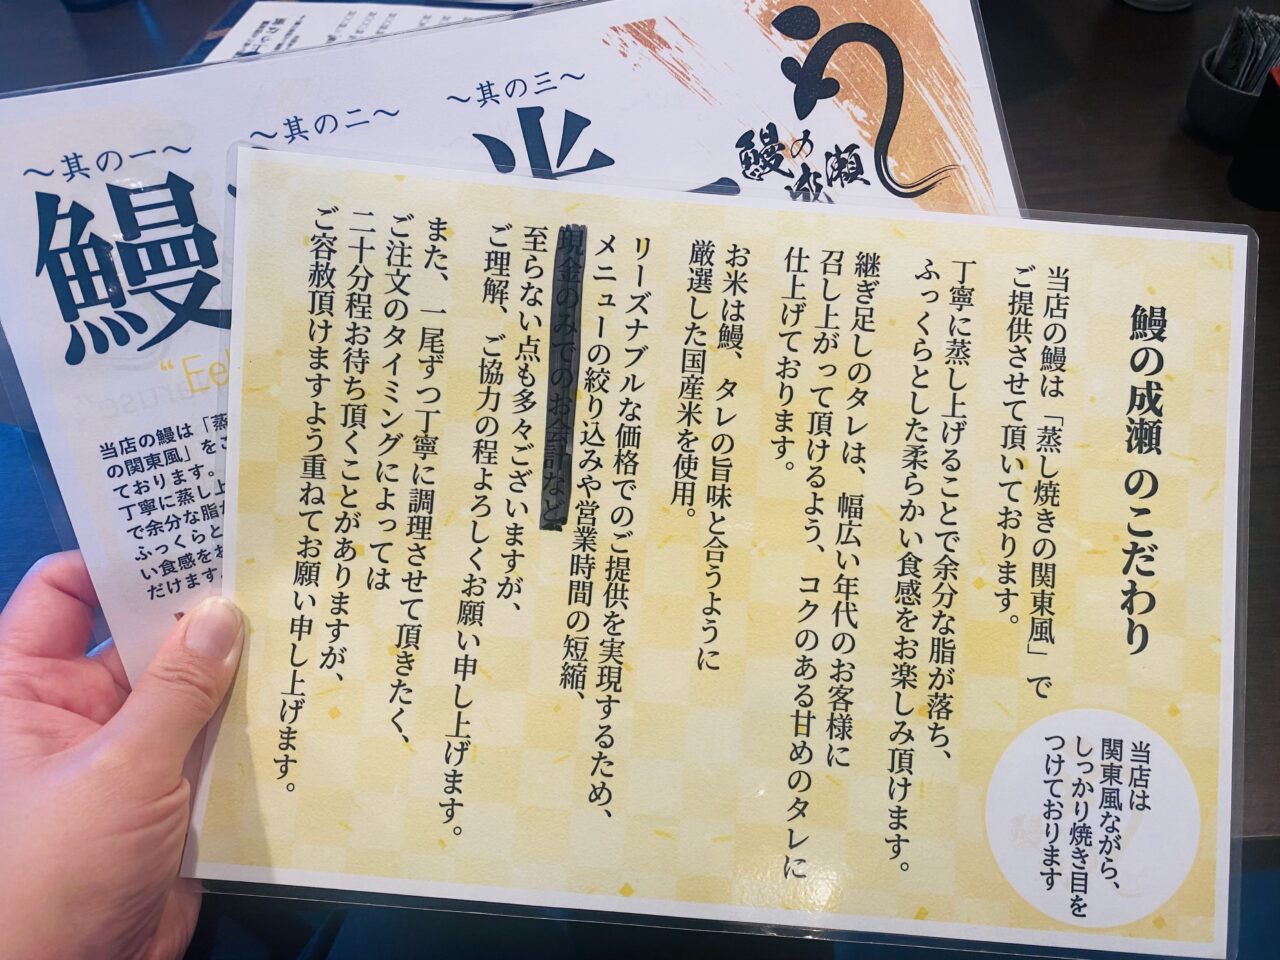 鰻の成瀬のこだわり
当店の鰻は「蒸し焼きの関東風」で
ご提供させて頂いております。
丁寧に蒸し上げることで余分な脂が落ち、
ふっくらとした柔らかい食感をお楽しみ頂けます。
継ぎ足しのタレは、幅広い年代のお客様に
召し上がって頂けるよう、コクのある甘めのタレに
仕上げております。
お米は鰻、タレの旨味と合うように
厳選した国産米を使用。
リーズナブルな価格でのご提供を実現するため、
メニューの絞り込みや営業時間の短縮、
現金のみでのお会計など
至らない点も多々ございますが、
ご理解、ご協力の程よろしくお願い申し上げます。
また、一尾ずつ丁寧に調理させて頂きたく、
ご注文のタイミングによっては
二十分程お待ち頂くことがありますが、
ご容赦頂けますよう重ねてお願い申し上げます。
当店は
関東風ながら、
しっかり焼き目を
つけております
鰻の成瀬
～其の三～
～其の二～
～其の一～
鰻
当店の鰻は「蒸
の関東風」をご
ております。
丁寧に蒸し上
で余分な脂が
ふっくらと
い食感をお
だけます